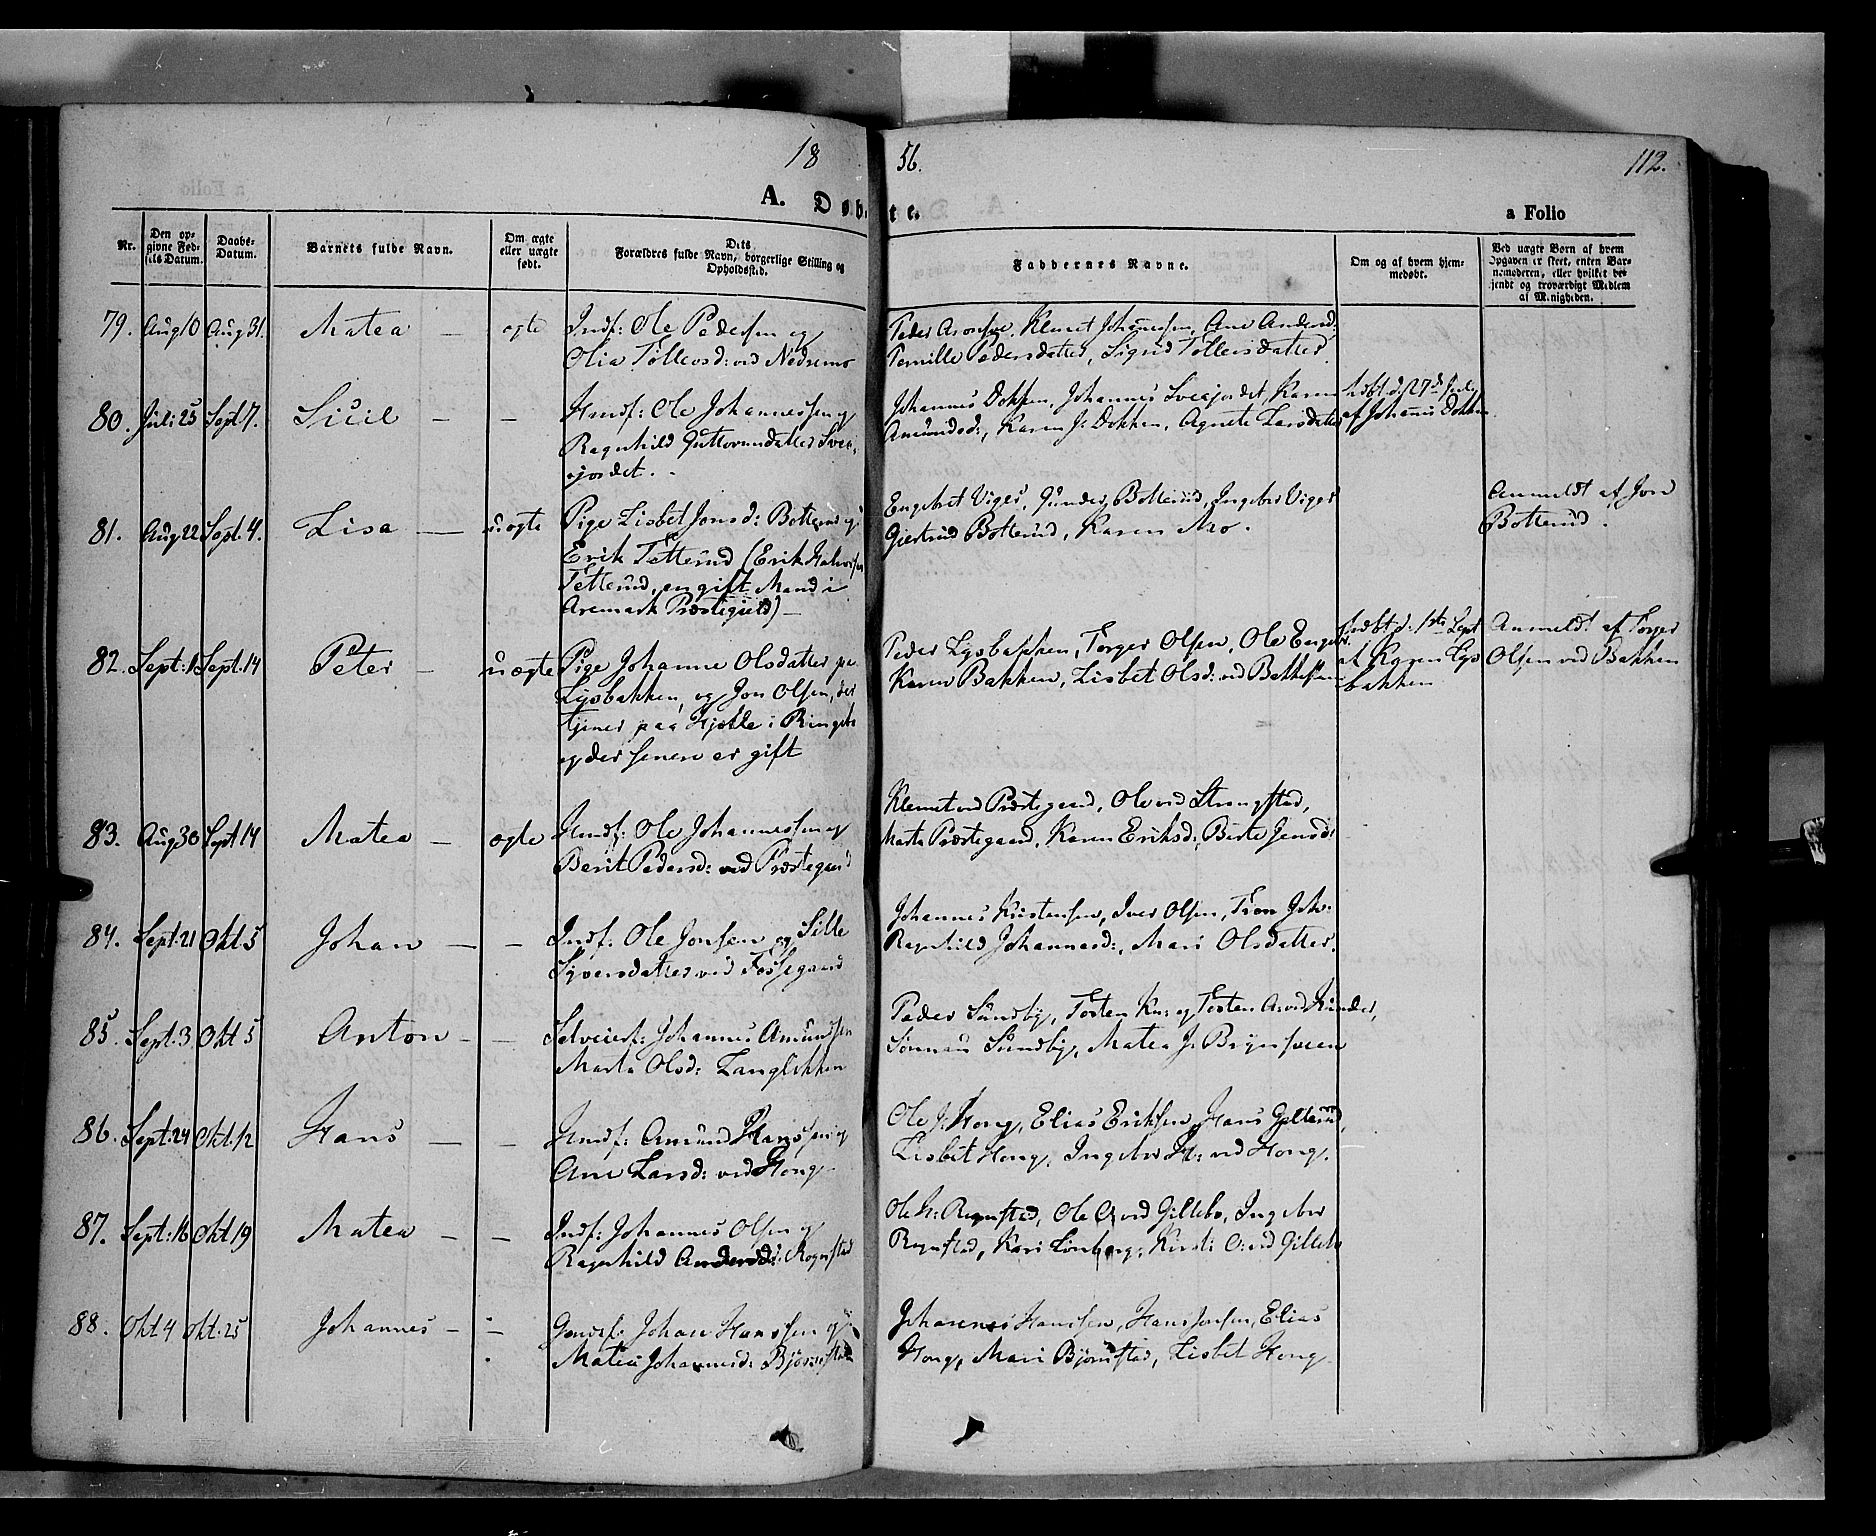 18 56. 112.
A. Døbte. a Folio
Nr. Den opgivne Fødsels Datum. Daabs-Datum. Barnets fulde Navn. Om ægte eller uægte født. Dets Forældres fulde Navn, borgerlige Stilling og Opholdssted. Faddernes Navne. Om og af hvem hjemmedøbt. Ved uægte Børn af hvem Opgaven er skeet, enten Barnemoderen, eller hvilket bekjendt og troværdigt Medlem af Menigheden.
79. Aug 10 Aug 31. Matea — ægte Indf: Ole Pedersen og Peder Klemet Johannesen, Ane Andersd:
Olia Tollevsd: ved Nedremo Pernille Pedersdatter, Sigrid Tollevsdatter
80. Juli 25 Sept 7. Sicil — — Huusf: Ole Johannessen og Johannes Dokken, Johannes Sveajordet, Karen hdbt d. 27d Juli
Ragnhild Guttormsdatter Svea- Amundsd:, Karen J. Dokken, Agnete Larsdatter af Johannes Dokken
jordet.
81. Aug 22 Sept. 4. Lisa — uægte Pige Lisbet Jonsd: Botterud og Engebret Viger, Gunder Botterud, Ingebor Viger Anmeldt af Jon
Erik Tetterud (Erik Halvorsen Gjertrud Botterud, Karen Mo. Botterud.
Tetterud, en gift Mand i
Aremark Præstegjeld) —
82. Sept: 1 Sept. 14 Peter — uægte Pige Johanne Olsdatter pa Peder Lysbakken, Torger Olsen, Ole Engebr. hdbt d. 1ste Sept Anmeldt af Torger
Lysbakken, og Jon Olsen, der Karen Bakken, Lisbet Olsd: ved af Karen Lys- Olsen ved Bakken
tjener paa i Ringebu bakken
og der senere er gift
83. Aug 30 Sept 14 Matea — ægte Huusf: Ole Johannessen og Klemet ved Præstegaard, Ole ved Strangstad,
Berit Pedersd: ved Præstegaard Marta Præstegaard, Karen Eriksd: Berte Jensd:
84. Sept. 21 Okt 5 Johan — — Indf: Ole Jonsen og Sille Johannes Kristensen, Iver Olsen, Tron Joh:
Syversdatter ved Fossegaard Ragnhild Johannesd:, Mari Olsdatter.
85. Sept. 3 Okt 5 Anton — — Selveierf: Johannes Amundsen Peder Sundby, Tosten Kn: og Tosten A: ved
Marta Olsd: Langlikken Sundby, Matea J. Brynsveen
86. Sept: 24 Okt. 12 Hans — — Huusf: Amund Hanssen og Ole J. Hong, Elias Eriksen, Hans Gillerud,
Ane Larsd: ved Hong Lisbet Hong, Ingebor H: ved Hong.
87. Sept: 16 Okt 19 Matea — — Indf: Johannes Olsen og Ole H: Rognstad, Ole O: ved Gillebo, Ingebor
Ragnhild Andersd: Rognstad Rognstad, Kari Lonberg, Kirsti O: ved Gillebo
88. Okt 4 Okt. 25 Johannes — — Gaardf: Johan Hanssen og Johannes Hanssen, Hans Jonsen, Elias
Matea Johannesd: Bjørnstad Hong, Mari Bjørnstad, Lisbet Hong